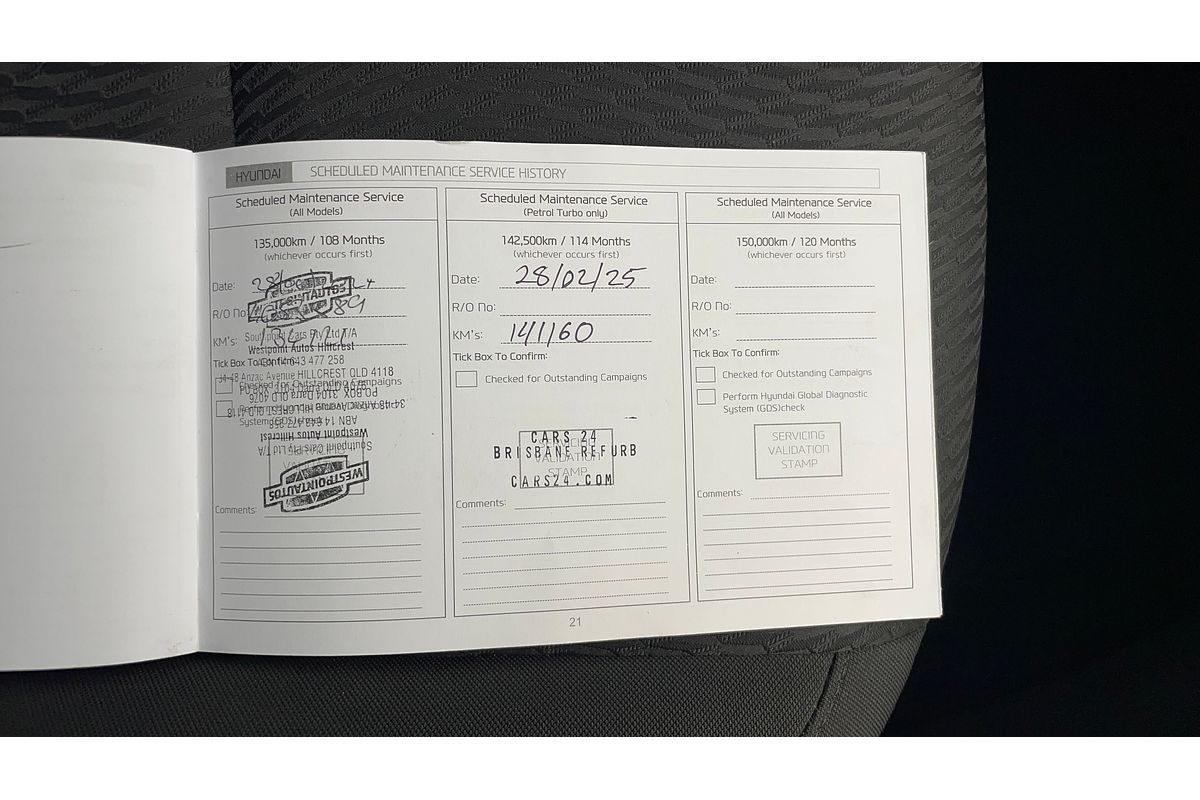 HYUNDAI SCHEDULED MAINTENANCE SERVICE HISTORY
Scheduled Maintenance Service
(All Models)
135,000km / 108 Months
(whichever occurs first)
Date:
R/O No:
KM's:
Southpoint Cars Pty Ltd T/A
Westpoint Autos Hillcrest
Tick Box To Confirm:
ABN 14 643 477 258
34-48 Anzac Avenue HILLCREST QLD 4118
Checked for Outstanding Campaigns
PO BOX 3104 Darra QLD 4076
34-48 Anzac Avenue HILLCREST QLD 4118
System (GDS)check
Westpoint Autos Hillcrest
Southpoint Cars Pty Ltd T/A
WESTPOINTAUTOS
Comments:
Scheduled Maintenance Service
(Petrol Turbo only)
142,500km / 114 Months
(whichever occurs first)
Date: 28/02/25
R/O No:
KM's: 141160
Tick Box To Confirm:
Checked for Outstanding Campaigns
CARS 24
BRISBANE REFURB
VALIDATION
STAMP
CARS24.COM
Comments:
Scheduled Maintenance Service
(All Models)
150,000km / 120 Months
(whichever occurs first)
Date:
R/O No:
KM's:
Tick Box To Confirm:
Checked for Outstanding Campaigns
Perform Hyundai Global Diagnostic
System (GDS)check
SERVICING
VALIDATION
STAMP
Comments:
21